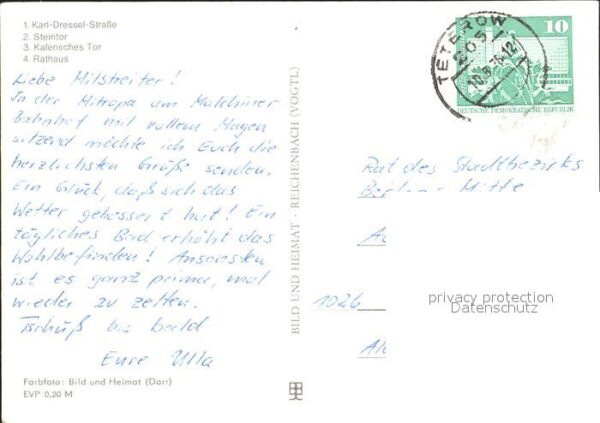 1. Karl-Dressel-Straße
2. Steintor
3. Kalensches Tor
4. Rathaus
Liebe Mitstreiter!
In der Mitropa am Malchiner
Bahnhof mit vollem Magen
sitzend möchte ich Euch die
herzlichsten Grüße senden.
Ein Glück, daß sich das
Wetter gebessert hat! Ein
tägliches Bad erhöht das
Wohlbefinden! Ansonsten
ist es ganz prima, mal
wieder zu zelten.
Tschüß bis bald
Eure Ulla
Farbfoto: Bild und Heimat (Darr)
EVP 0,20 M
BILD UND HEIMAT · REICHENBACH (VOGTL)
TETEROW
205
10
DEUTSCHE DEMOKRATISCHE REPUBLIK
Rat des Stadtbezirks
Berlin-Mitte
1026
privacy protection
Datenschutz